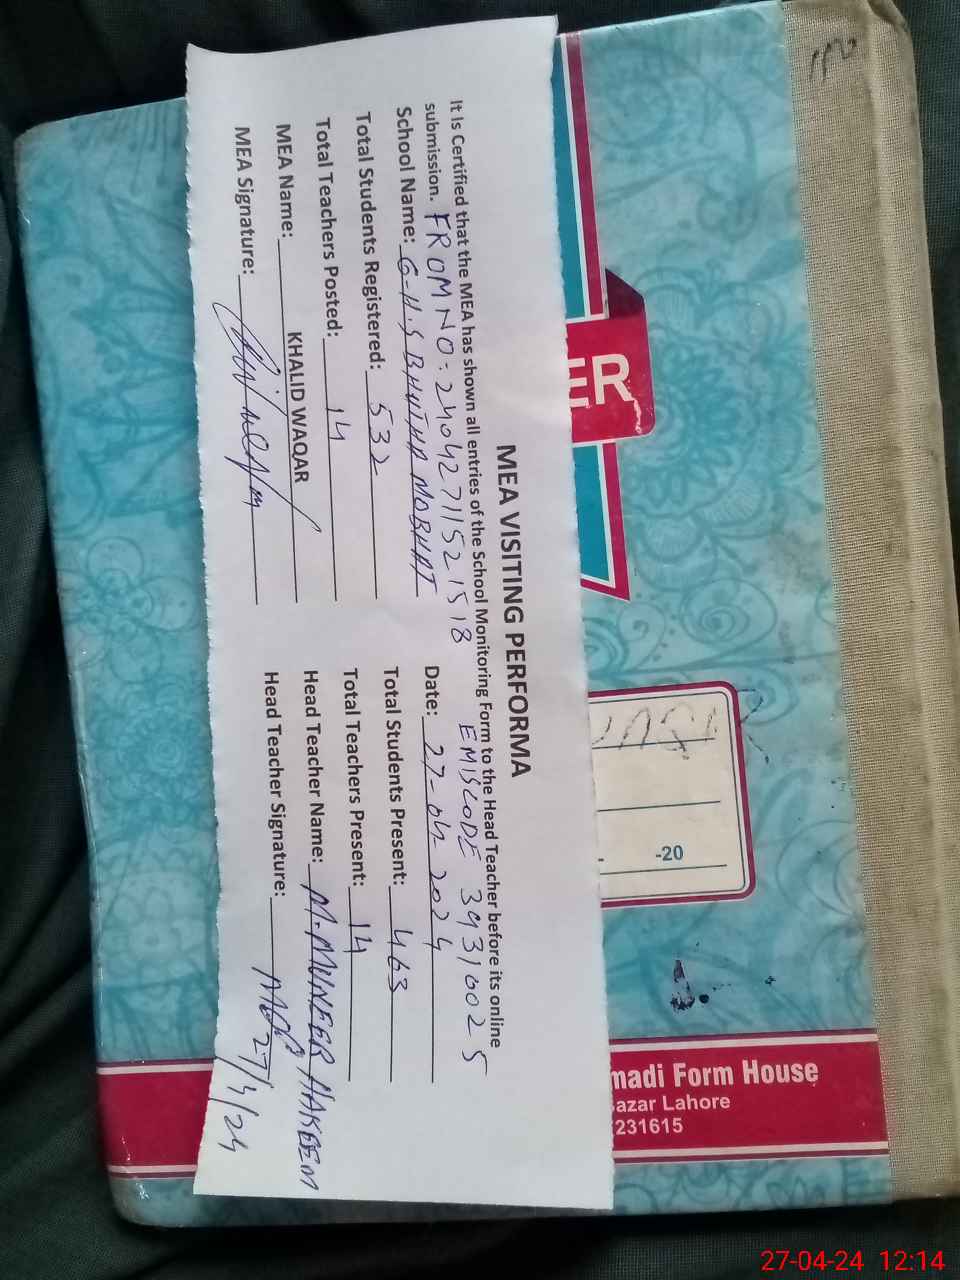 MEA VISITING PERFORMA
It Is Certified that the MEA has shown all entries of the School Monitoring Form to the Head Teacher before its online
submission. FROM NO: 24042711521518 EMISCODE 39310025
School Name: G.H.S BHUTHA MOBHAT Date: 27-04-2024
Total Students Registered: 532 Total Students Present: 463
Total Teachers Posted: 14 Total Teachers Present: 14
MEA Name: KHALID WAQAR Head Teacher Name: M. MUNEER HAKEEM
MEA Signature: Head Teacher Signature:
27/4/24
ER
-20
madi Form House
azar Lahore
231615
27-04-24 12:14